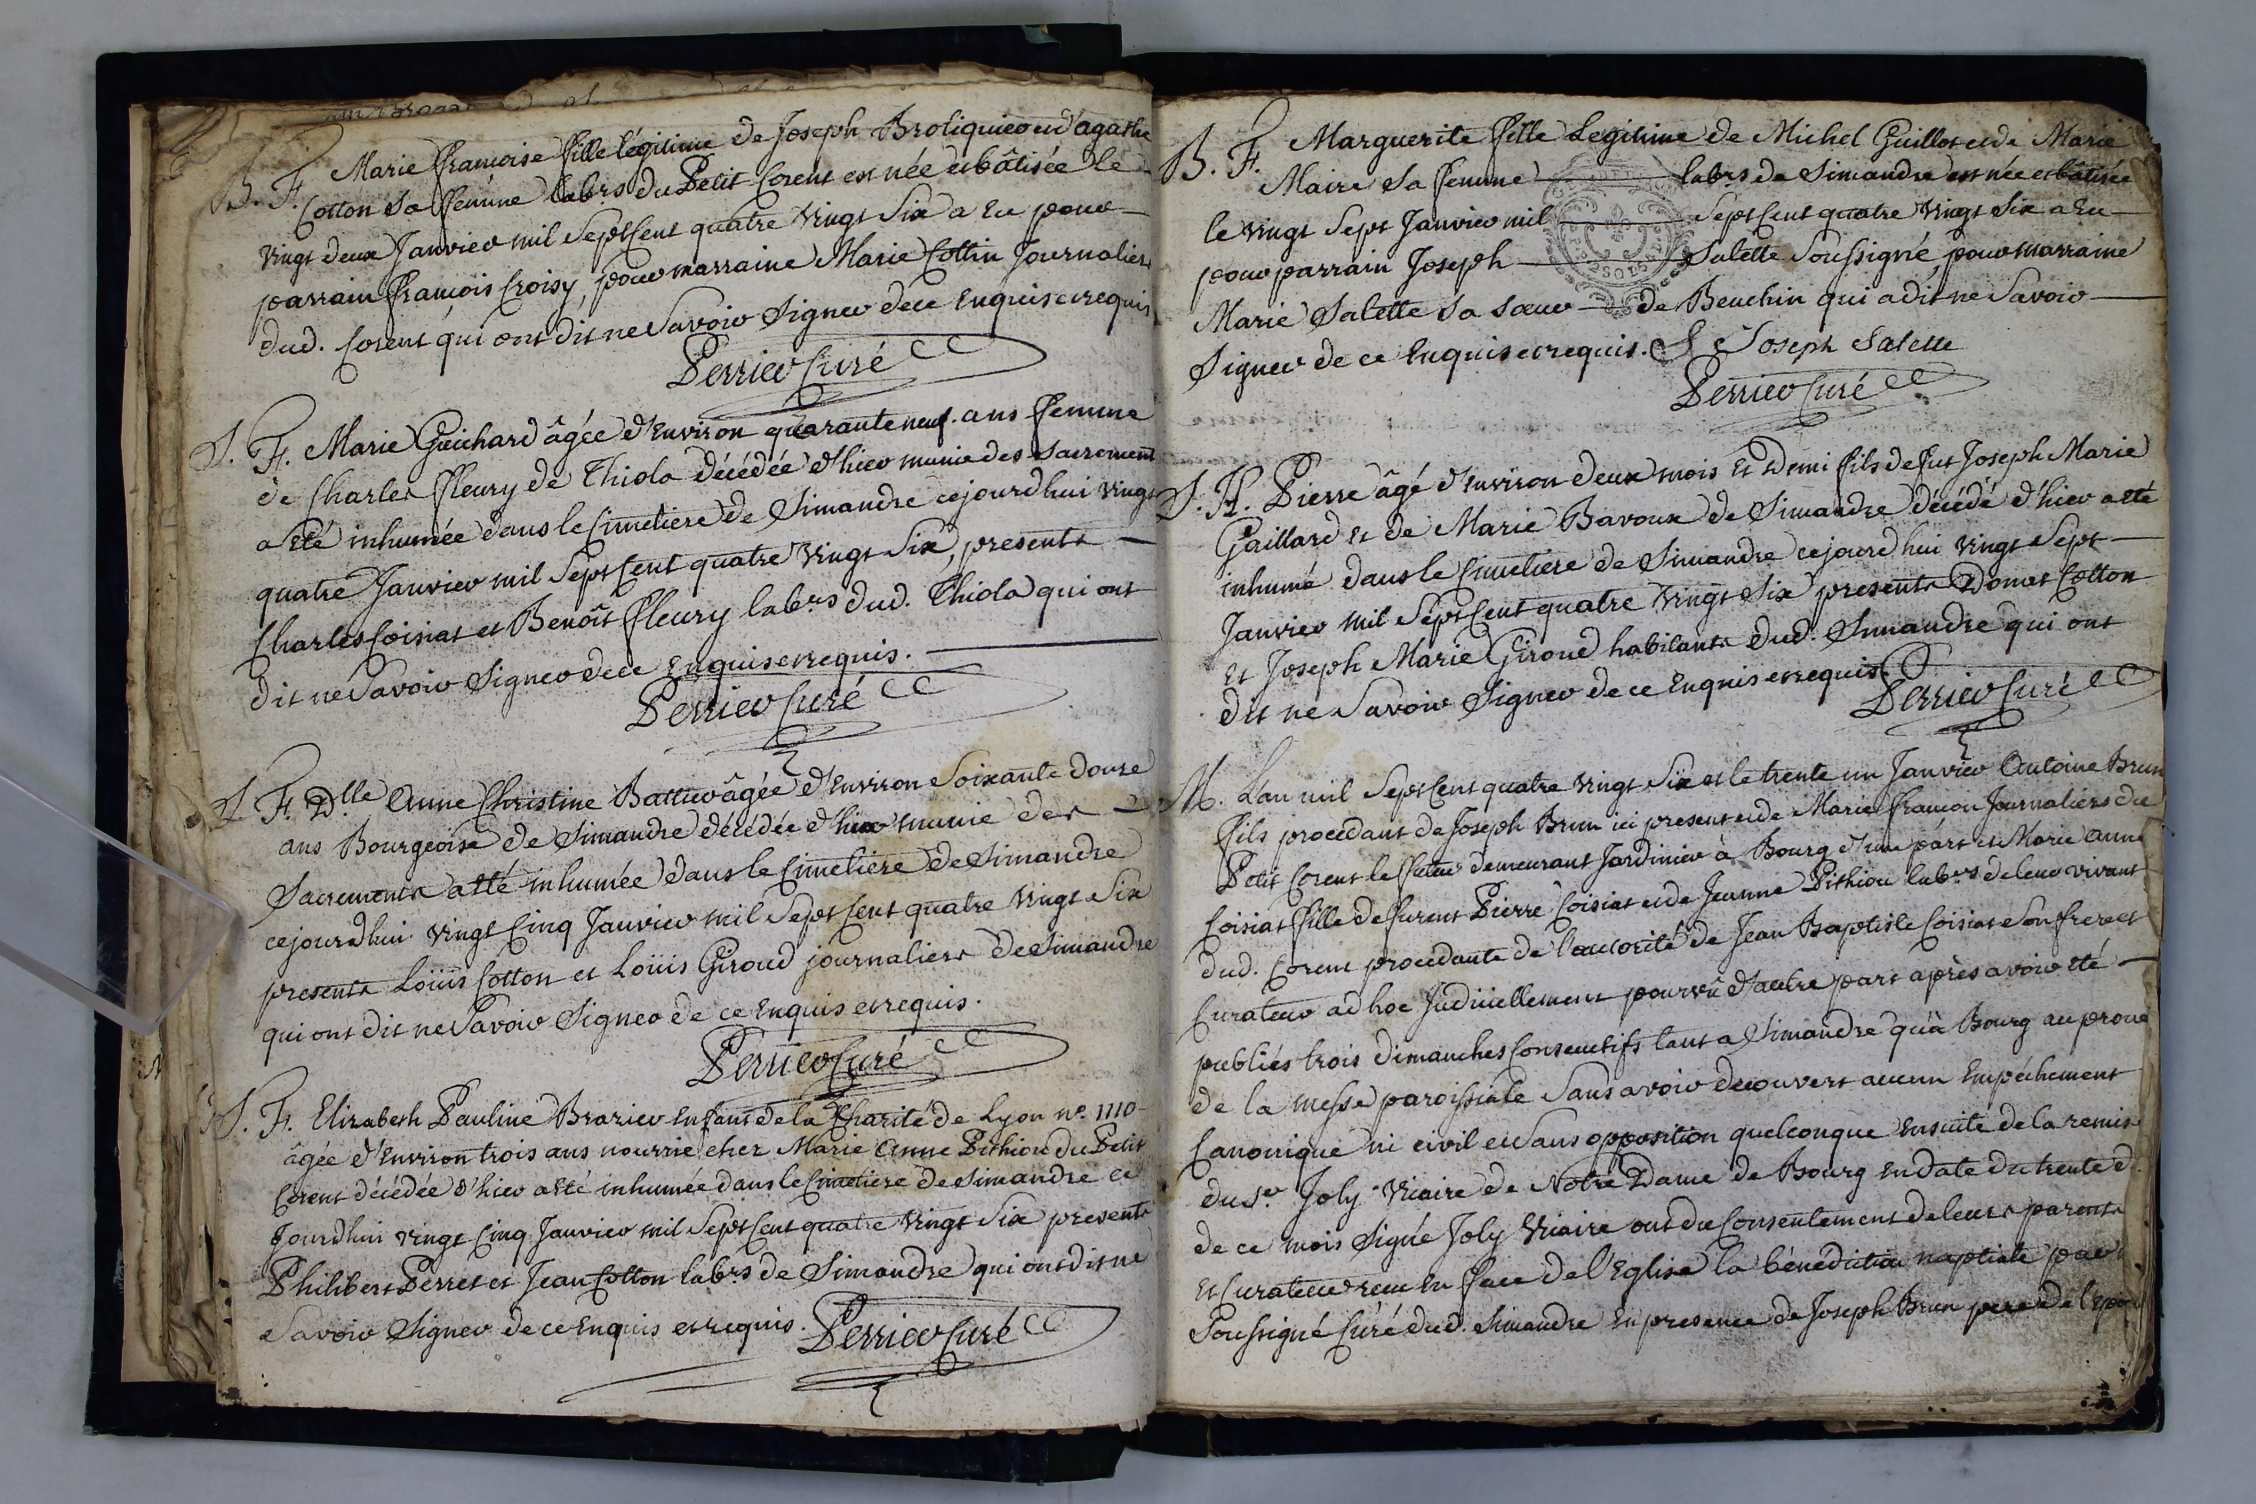 B. F. Marie françoise fille légitime de Joseph Broliquier et d'agathe
Cotton sa femme labrs du Petit Corent est née et bâtisée le
vingt deux Janvier mil Sept Cent quatre vingt Six a eu pour
parrain françois Croisy, pour marraine Marie Cottin Journaliers
dud. Corent qui ont dit ne Savoir Signer de ce Enquis et requis
Perrier Curé
S. F. Marie Guichard âgée d'Environ quarante neuf ans femme
de Charles Fleury de Thiola décédée d'hier munie des Sacrement
a Eté inhumée dans le Cimetiere de Simandre cejourdhui vingt
quatre Janvier mil Sept Cent quatre vingt Six, presents
Charles Coisiat et Benoît Fleury labrs dud. Thiola qui ont
dit ne Savoir Signer de ce Enquis et requis.
Perrier Curé
S. F. Dlle Anne Christine Battier âgée d'Environ Soixante douze
ans Bourgeoise de Simandre décédée d'hier munie des
Sacrements a Eté inhumée dans le Cimetiere de Simandre
cejourdhui vingt Cinq Janvier mil Sept Cent quatre vingt Six
presents Loüis Cotton et Loüis Giroud journaliers de Simandre
qui ont dit ne Savoir Signer de ce Enquis et requis.
Perrier Curé
S. F. Elizabeth Pauline Brazier Enfant de la Charité de Lyon no. 1110
âgée d'Environ trois ans nourrie chez Marie Anne Pithiou du Petit
Corent décédée d'hier a Eté inhumée dans le Cimetiere de Simandre ce
Jourdhui vingt Cinq Janvier mil Sept Cent quatre vingt Six presents
Philibert Perret et Jean Cotton labrs de Simandre qui ont dit ne
Savoir Signer de ce Enquis et requis. Perrier Curé
B. F. Marguerite fille Legitime de Michel Guillot et de Marie
Maire sa femme labrs de Simandre est née et bâtisée
le vingt Sept Janvier mil Sept Cent quatre vingt Six a Eu
pour parrain Joseph Salette Soussigné, pour marraine
Marie Salette sa sœur de Beuchin qui a dit ne Savoir
Signer de ce Enquis et requis. Joseph Salette
Perrier Curé
S. H. Pierre âgé d'Environ deux mois Et Demi fils de fut Joseph Marie
Gaillard et de Marie Bavoux de Simandre décédé d'hier a Eté
inhumé dans le Cimetiere de Simandre cejourd'hui vingt Sept
Janvier mil Sept Cent quatre vingt Six presents Domat Cotton
Et Joseph Marie Giroud habitants dud. Simandre qui ont
dit ne Savoir Signer de ce Enquis et requis.
Perrier Curé
M. Lan mil Sept Cent quatre vingt Six et le trente un Janvier Antoine Brun
fils procedant de Joseph Brun ici present et de Marie françon Journaliers du
Petit Corent le futur demeurant Jardinier à Bourg d'une part et Marie Anne
Coisiat fille de furent Pierre Coisiat et de Jeanne Pithiou labrs de leur vivant
dud. Corent procedante de l'autorité de Jean Baptiste Coisiat Son frere et
Curateur ad hoc Judiciellement pourvû d'autre part après avoir été
publiés trois dimanches Consecutifs tant a Simandre qu'à Bourg au prone
de la messe paroissiale Sans avoir decouvert aucun Empéchement
Canonique ni civil et Sans opposition quelconque Ensuite de la remise
du Sr. Joly Vicaire de Notre Dame de Bourg En date du trente d.
de ce mois Signé Joly Vicaire ont du Consentement de leurs parents
et Curateur recu En face de l'Eglise la bénédiction nuptiale par
Soussigné Curé dud. Simandre En presence de Joseph Brun pere de l'epou